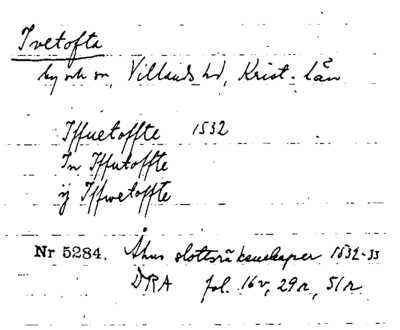 Ivetofta
by och sn, Villands hd, Krist. län
Iffuetoffte 1532
In Iffutoffte
ij Iffwetoffte
Nr 5284. Åhus slottsräkenskaper 1532-33
DRA fol. 16v, 29r, 51r